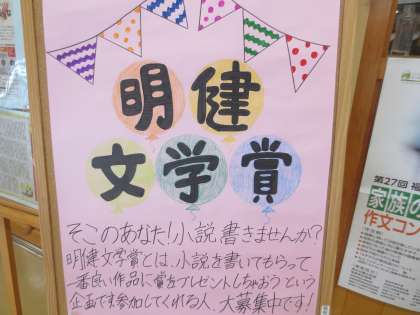 明健
文学賞
そこのあなた!小説書きませんか?
明健文学賞とは、小説を書いてもらって
一番良い作品に賞をプレゼントしちゃおうという
企画です参加してくれる人、大募集中です!
第27回
家族の
作文コン